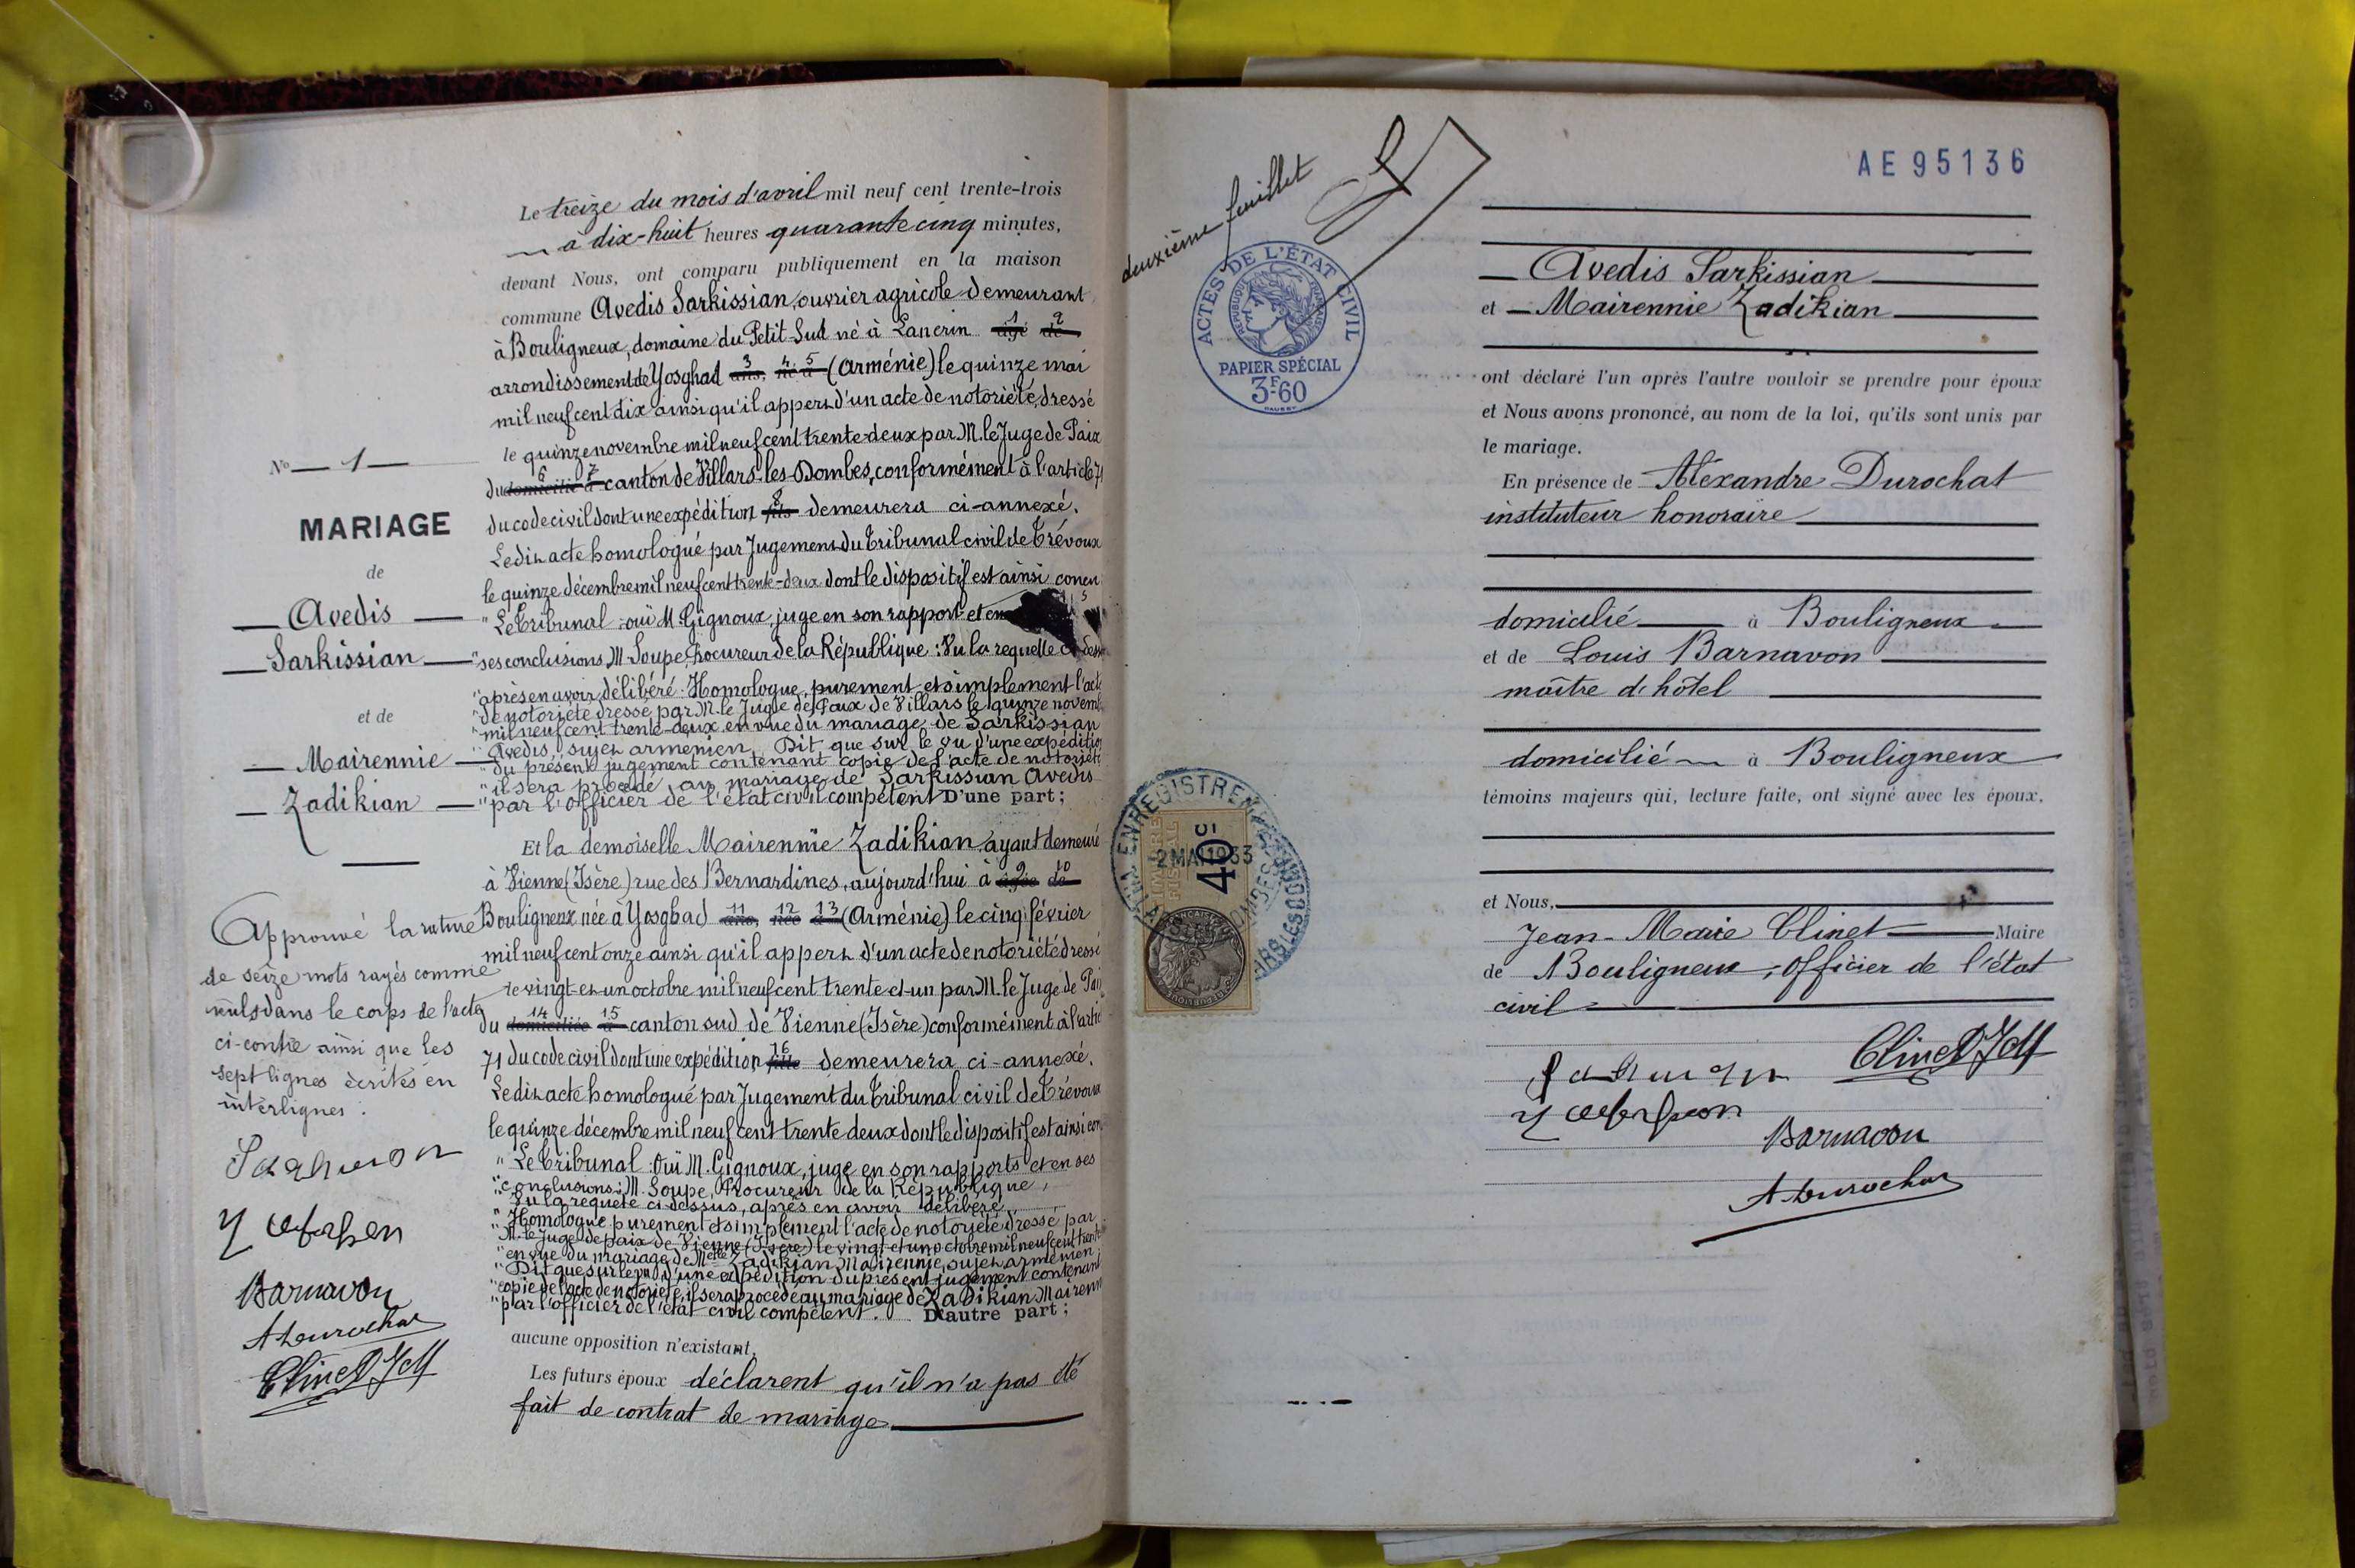 Le treize du mois d'avril mil neuf cent trente-trois
à dix-huit heures quarante cinq minutes,
devant Nous, ont comparu publiquement en la maison
commune Avedis Sarkissian, ouvrier agricole demeurant
à Bouligneux, domaine du Petit Sud né à Lancrin âgé 1 de 2
arrondissement de Yosghad ans, 3 né 4 à 5 (Arménie) le quinze mai
mil neuf cent dix ainsi qu'il appert d'un acte de notoriété, dressé
le quinze novembre mil neuf cent trente-deux par M. le Juge de Paix
du domicilié 6 à 7 canton de Villars-les-Dombes, conformément à l'article 71
du code civil dont une expédition fils 8 demeurera ci-annexé.
Ledit acte homologué par Jugement du Tribunal civil de Trévoux
le quinze décembre mil neuf cent trente-deux dont le dispositif est ainsi concu
"Le Tribunal : ouï M Gignoux, juge en son rapport et en
"ses conclusions, M Soupe, Procureur de la République : Vu la requette
"après en avoir délibéré. Homologue, purement et simplement l'acte
"de notoriété dressé par M. le Juge de Paix de Villars le quinze novemb
"mil neuf cent trente-deux en vue du mariage de Sarkissian
"Avedis, sujet arménien. Dit que sur le vu d'une expédition
"du présent jugement contenant copie de l'acte de notoriété
"il sera procédé au mariage de Sarkissian Avedis
"par l'officier de l'état civil compétent D'une part;
Et la demoiselle Mairennie Zadikian, ayant demeuré
à Vienne (Isère) rue des Bernardines, aujourd'hui à âgée 9 de 10
Bouligneux née à Yosghad ans, 11 née 12 à 13 (Arménie) le cinq février
mil neuf cent onze ainsi qu'il appert d'un acte de notoriété dressé
le vingt-et-un octobre mil neuf cent trente-et-un par M. le Juge de Paix
du domiciliée 14 à 15 canton sud de Vienne (Isère) conformément à l'article
71 du code civil dont une expédition fille 16 demeurera ci-annexé.
Ledit acte homologué par Jugement du Tribunal civil de Trévoux
le quinze décembre mil neuf cent trente deux dont le dispositif est ainsi con
"Le Tribunal : Ouï M. Gignoux, juge en son rapports et en ses
"conclusions; M. Soupe, Procureur de la République,
"Vu la requête ci-dessus, après en avoir délibéré,
"Homologue purement et simplement l'acte de notoriété dressé par
"M. le Juge de paix de Vienne (Isère) le vingt et un octobre mil neuf cent trente
"en vue du mariage de Melle Zadikian Mairennie, sujet arménien
"Dit que sur le vu d'une expédition du présent jugement contenant
"copie de l'acte de notoriété, il sera procédé au mariage de Zadikian Mairenn
"par l'officier de l'état civil compétent. D'autre part;
aucune opposition n'existant.
Les futurs époux déclarent qu'il n'a pas été
fait de contrat de mariage
No 1
MARIAGE
de
Avedis
Sarkissian
et de
Mairennie
Zadikian
Approuvé la rature
de seize mots rayés comme
nuls dans le corps de l'acte
ci-contre ainsi que les
sept lignes écrites en
interlignes.
Barnavon
A Durochat
Clinet J M
deuxième feuillet
ACTES DE L'ÉTAT CIVIL
RÉPUBLIQUE FRANÇAISE
PAPIER SPÉCIAL
3F60
2 MAI 1933
40
AE95136
Avedis Sarkissian
et Mairennie Zadikian
ont déclaré l'un après l'autre vouloir se prendre pour époux
et Nous avons prononcé, au nom de la loi, qu'ils sont unis par
le mariage.
En présence de Aléxandre Durochat
instituteur honoraire
domicilié à Bouligneux
et de Louis Barnavon
maître d'hôtel
domicilié à Bouligneux
témoins majeurs qui, lecture faite, ont signé avec les époux.
et Nous,
Jean-Marie Clinet Maire
de Bouligneux, Officier de l'état
civil
Clinet J M
Barnavon
A Durochat